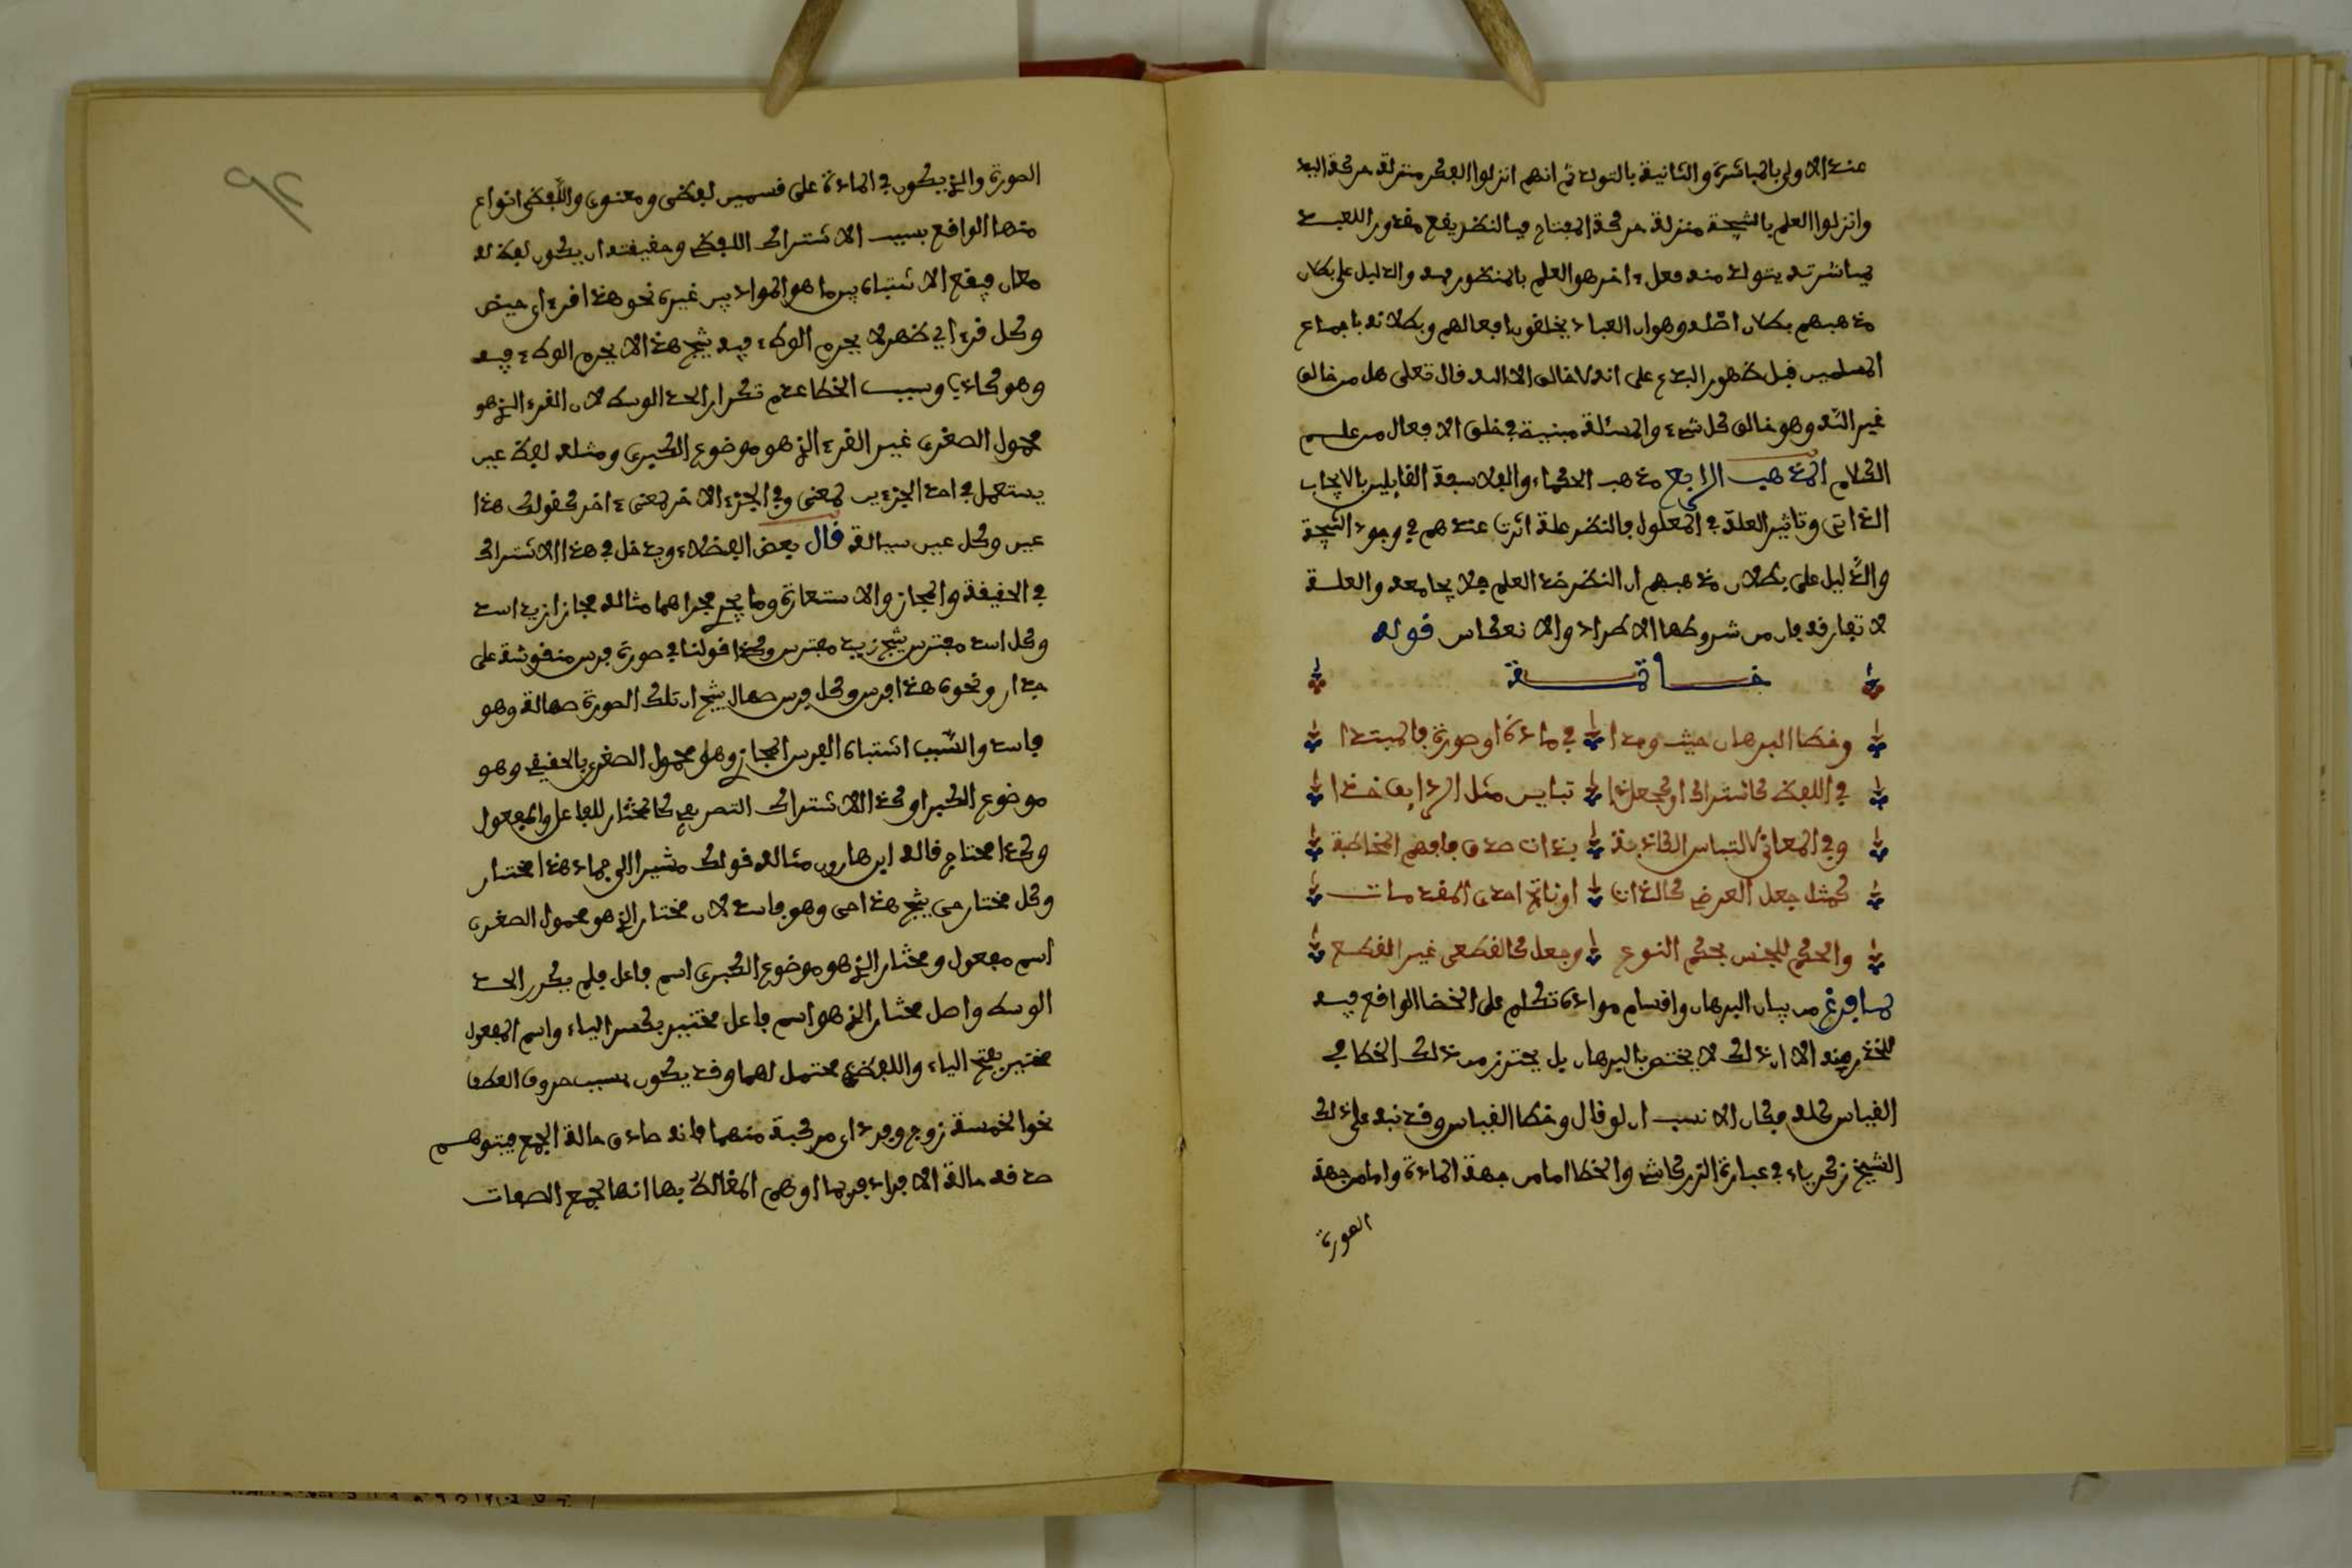 عندهم الاولى بالمباشرة والثانية بالتولد ثم انهم انزلوا الفكر منزلة حركة اليد
وانزلوا العلم بالنتيجة منزلة حركة المفتاح فبالنظر يقع مقدور اللعبد
بمباشرته يتولد منه فعل ءاخر هو العلم بالمنظور فيه والدليل على بطلان
مذهبهم بطلان اصله وهو ان العباد يخلقون افعالهم وبطلانه باجماع
المسلمين قبل ظهور البدع على انه لا خالق الا الله قال تعلى هل من خالق
غير الله وهو خالق كل شيء والمسئلة مبنية في خلق الافعال من علم
الكلام المذهب الرابع مذهب الحكماء والفلاسفة القايلين بالايجاب
الذاتي وتاثير العلة في المعلول فالنظر علة اثرت عندهم في وجود النتيجة
والدليل على بطلان مذهبهم ان النظر ضد العلم فلا يجامعه والعلة
لا تفارقه فان من شروطها الاطراد والانعكاس قوله
خاتمة
وخطا البرهان حيث وجدا في مادة او صورة فالمبتدا
في اللفظ كاشتراك او كجعل ذا تباين مثل الرديف ماخذا
وفي المعاني لالتباس الكاذبة بذات صدق فافهم المخاطبة
كمثل جعل العرضي كالذات او ناتج احدى المقدمات
والحكم للجنس بحكم النوع وجعل كالقطعي غير القطع
لما فرغ من بيان البرهان واقسام مواده تكلم على الخطا الواقع فيه
للحذر منه الا ان ذلك لا يختص بالبرهان بل يحترز من ذلك الخطا في
القياس كله فكان الانسب ان لو قال وخطا القياس وقد نبه على ذلك
الشيخ زكرياء في عبارة الزركاشي والخطا اما من جهة المادة واما من جهة
الصورة
الصورة والذي يكون في المادة على قسمين لفظي ومعنوي واللفظي انواع
منها الواقع بسبب الاشتراك اللفظي وحقيقته ان يكون لفظ له
معان فيقع الاشتباه بين ما هو المراد بين غيره نحو هذا قرء اي حيض
وكل قرء اي طهر لا يحرم الوطء فيه ينتج هذا لا يحرم الوطء فيه
وهو كاذب وسبب الخطا عدم تكرار الحد الوسط لان القرء الذي هو
محمول الصغرى غير القرء الذي هو موضوع الكبرى ومثله لفظ عين
يستعمل في احد الجزءين لمعنى وفي الجزء الاخر لمعنى ءاخر كقولك هذا
عين وكل عين سيالة قال بعض الفضلاء ويدخل في هذا الاشتراك
في الحقيقة والمجاز والاستعارة وما يجري مجراهما مثاله مجازا زيد اسد
وكل اسد مفترس ينتج زيد مفترس وكذا قولنا في صورة فرس منقوشة على
جدار ونحوه هذا فرس وكل فرس صهال ينتج ان تلك الصورة صهالة وهو
فاسد والسبب اشتباه الفرس المجازي وهو محمول الصغرى بالحقيقي وهو
موضوع الكبرا وكذا الاشتراك التصريفي كالمختار للفاعل والمفعول
وكذا محتاج قاله ابن هارون مثاله قولك مشيرا الى جماد هذا مختار
وكل مختار حي ينتج هذا حي وهو فاسد لان مختار الذي هو محمول الصغرى
اسم مفعول ومختار الذي هو موضوع الكبرى اسم فاعل فلم يكرر الحد
الوسط واصل مختار الذي هو اسم فاعل مختير بكسر الياء واسم المفعول
مختير بفتح الياء واللفظ محتمل لهما وقد يكون بسبب حروف العطف
نحو الخمسة زوج وفرد اي مركبة منهما فانه صادق حالة الجمع فيتوهم
صدقه حالة الافراد فربما اوهم المغالط بها انها لجمع الصفات